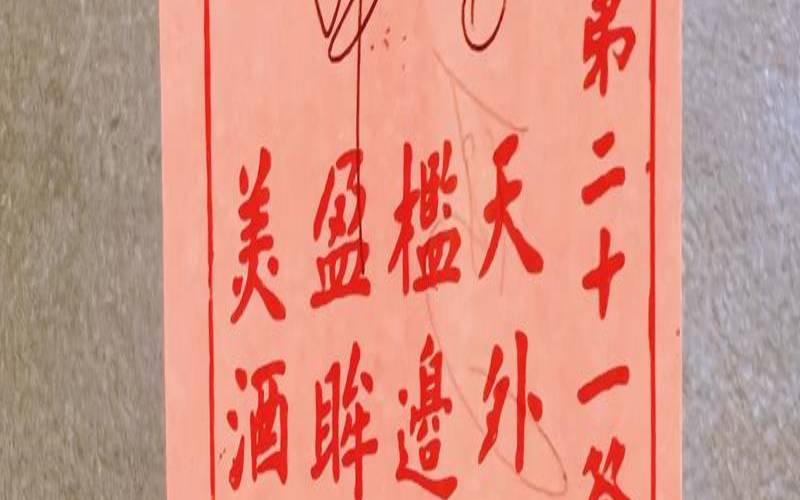 第二十一
天外
檻邊
盈眸
美酒